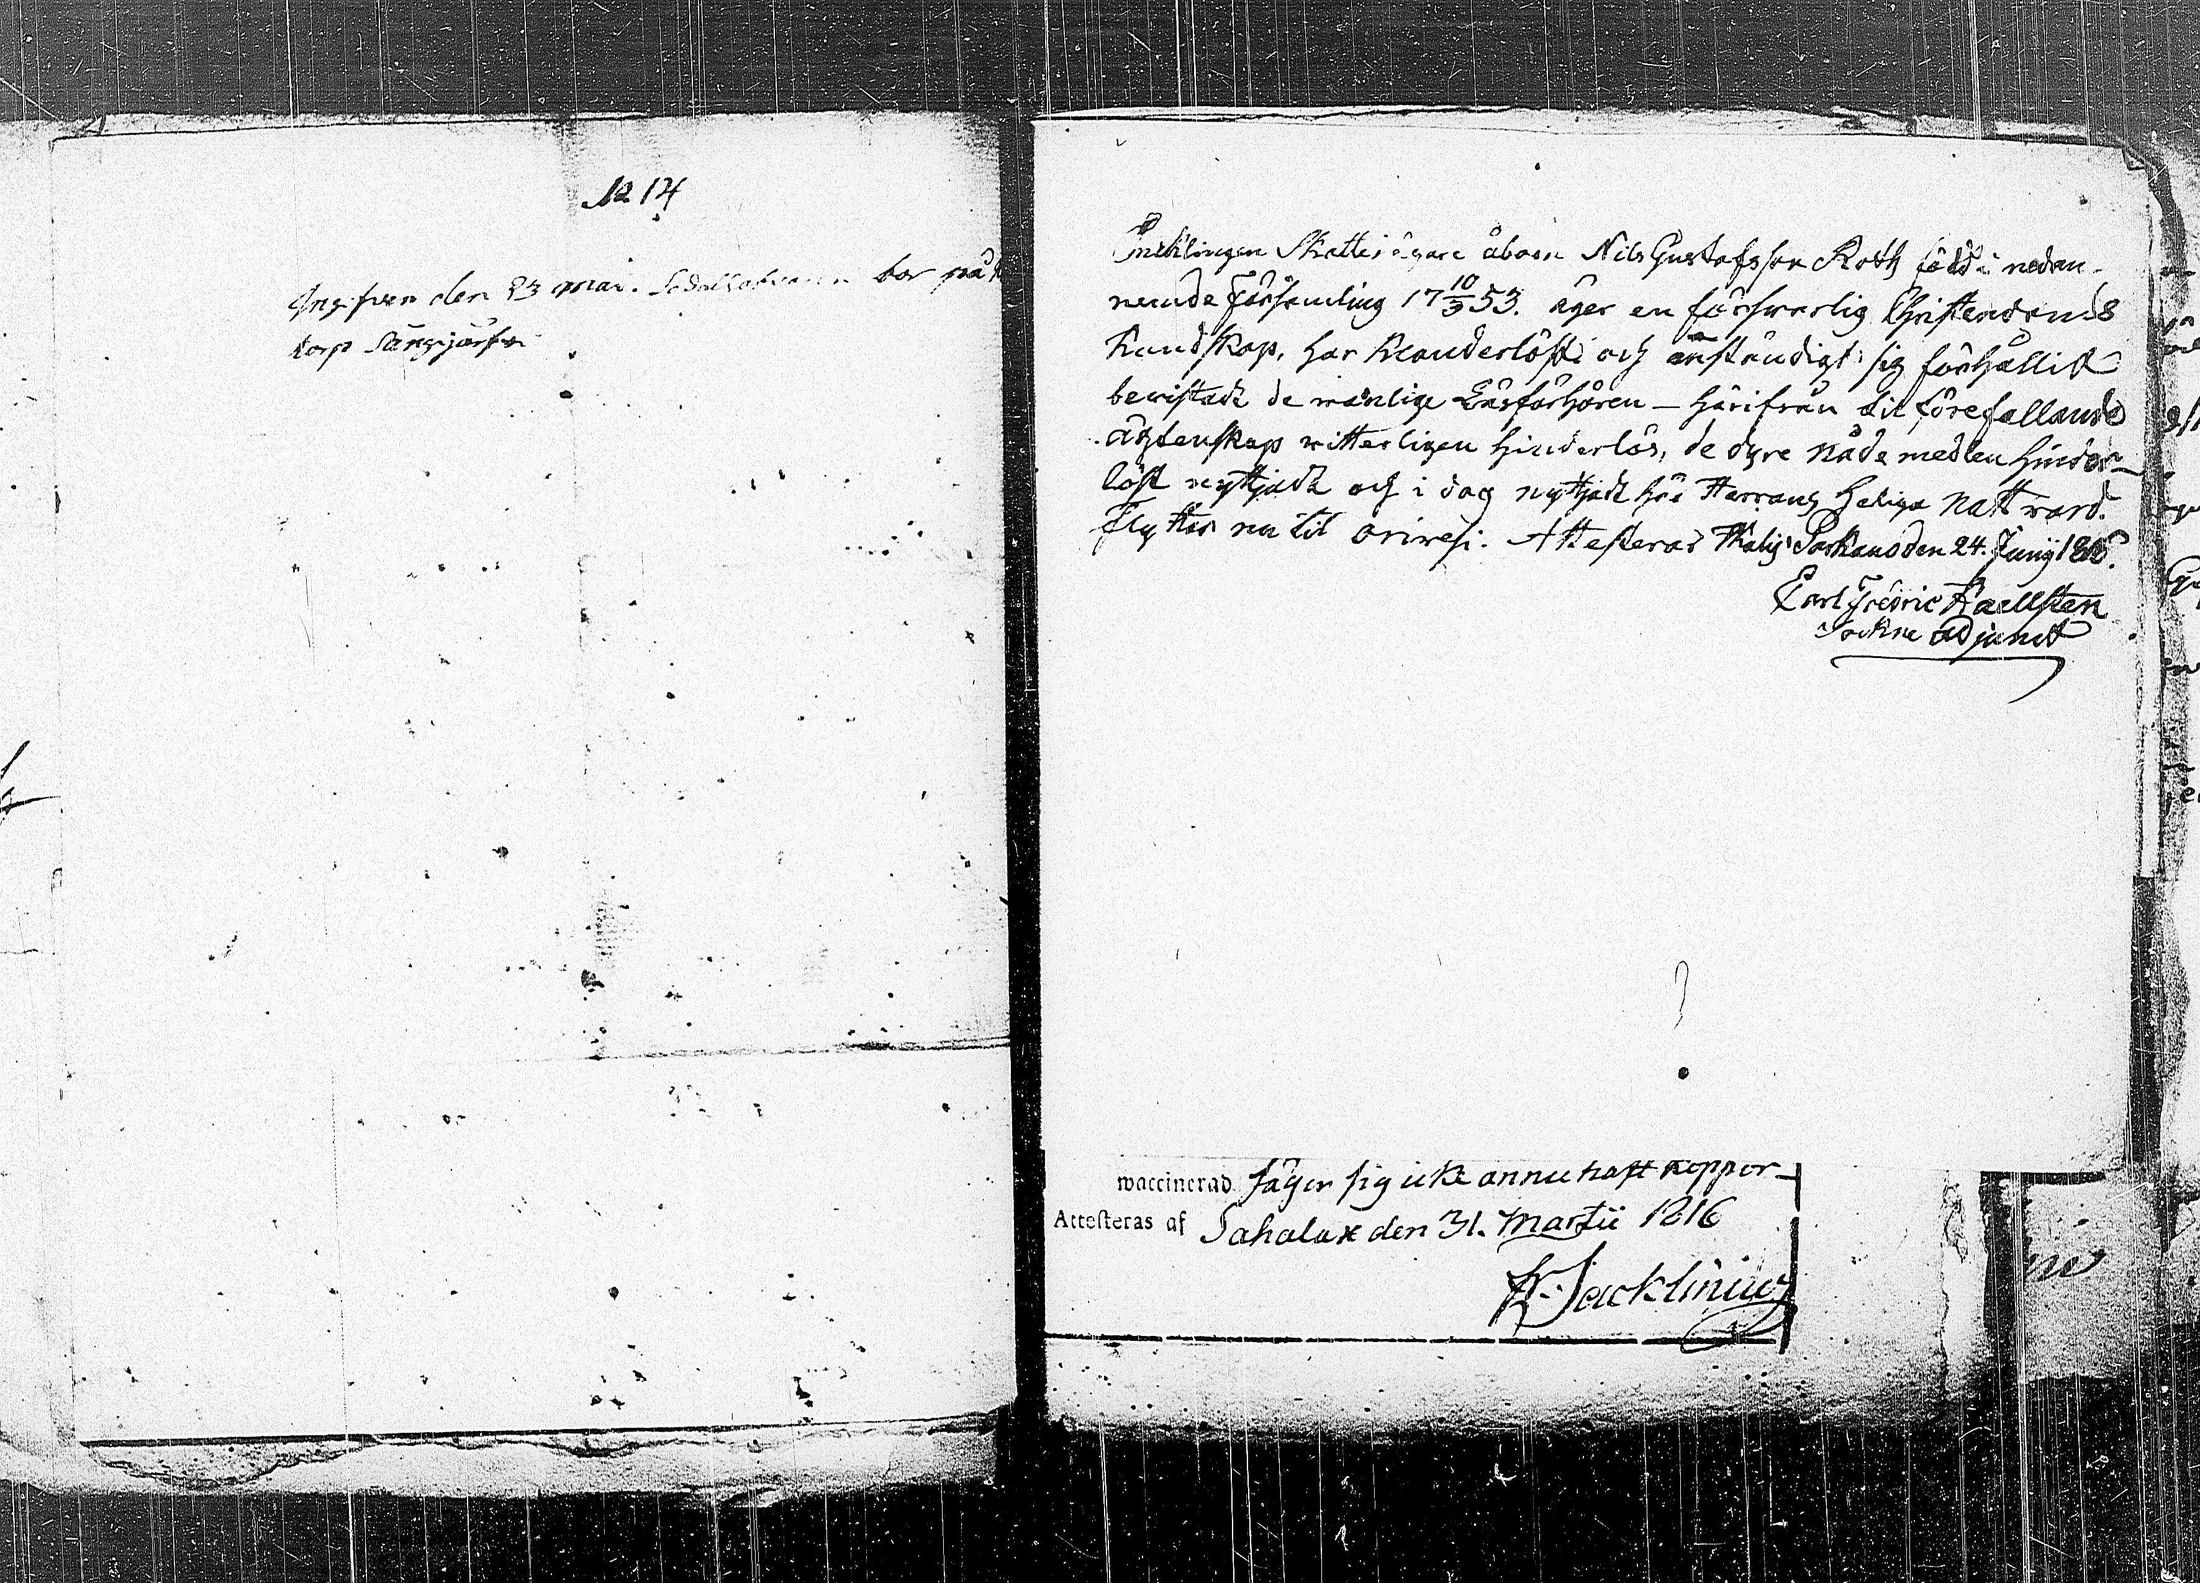 No 14
Ingifven den 23 mai. bor på
torp Långjärfvi
Enklingen Skattesägare åboen Nils Gustafsson Roth född i nedan-
nemde Församling 17 10/3 53. äger en försvarlig Christendoms
Kundskap, har klanderlöst och anständigt sig förhållit
bevistadt de wanlige Läsförhören – härifrån till förefallande
ägtenskap witterligen hinderlös, de dyre nåde medlen hinder-
löst nyttjadt och i dag nyttjadt här Herrans heliga nattward.
flyttar nu til Orivesi. Attesteras Parkano den 24. Junij 1815.
Carl Fredric Kaellsten
Sockne Adjunct
waccinerad. säger sig icke ännu haft koppor
Attesteras af Sahalax den 31. Martii 1816
Jacklinius